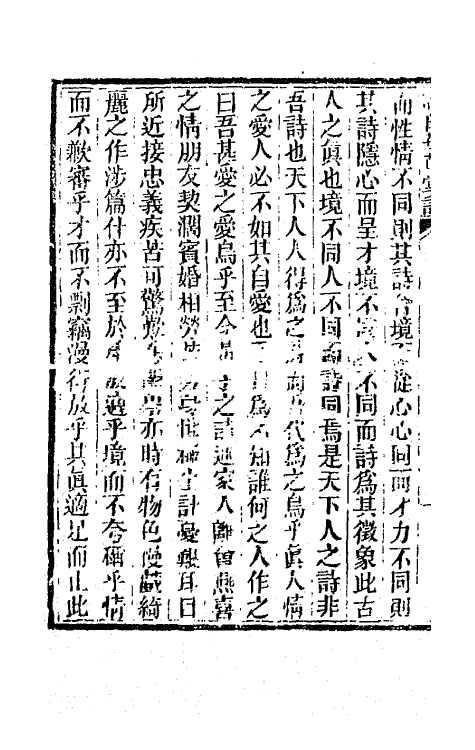 而性情不同則其詩境從心心同而才力不同則
其詩隱心而呈才境不人不同而詩爲其徵象此古
人之眞也境不同人不同而詩同焉是天下人之詩非
吾詩也天下人人得爲之吾代爲之烏乎眞人情
之愛人必不如其自愛也爲不知誰何之人作之
曰吾甚愛之愛烏乎至今之詩述家人離曾燕喜
之情朋友契濶賓婚相勞計憂耳目
所近接忠義疾苦可驚歎亦時有物色慢藏綺
麗之作涉篇什亦不至於適乎境而不夸稱乎情
而不歉審乎才而不剽竊漫衍放乎其眞適足而止此